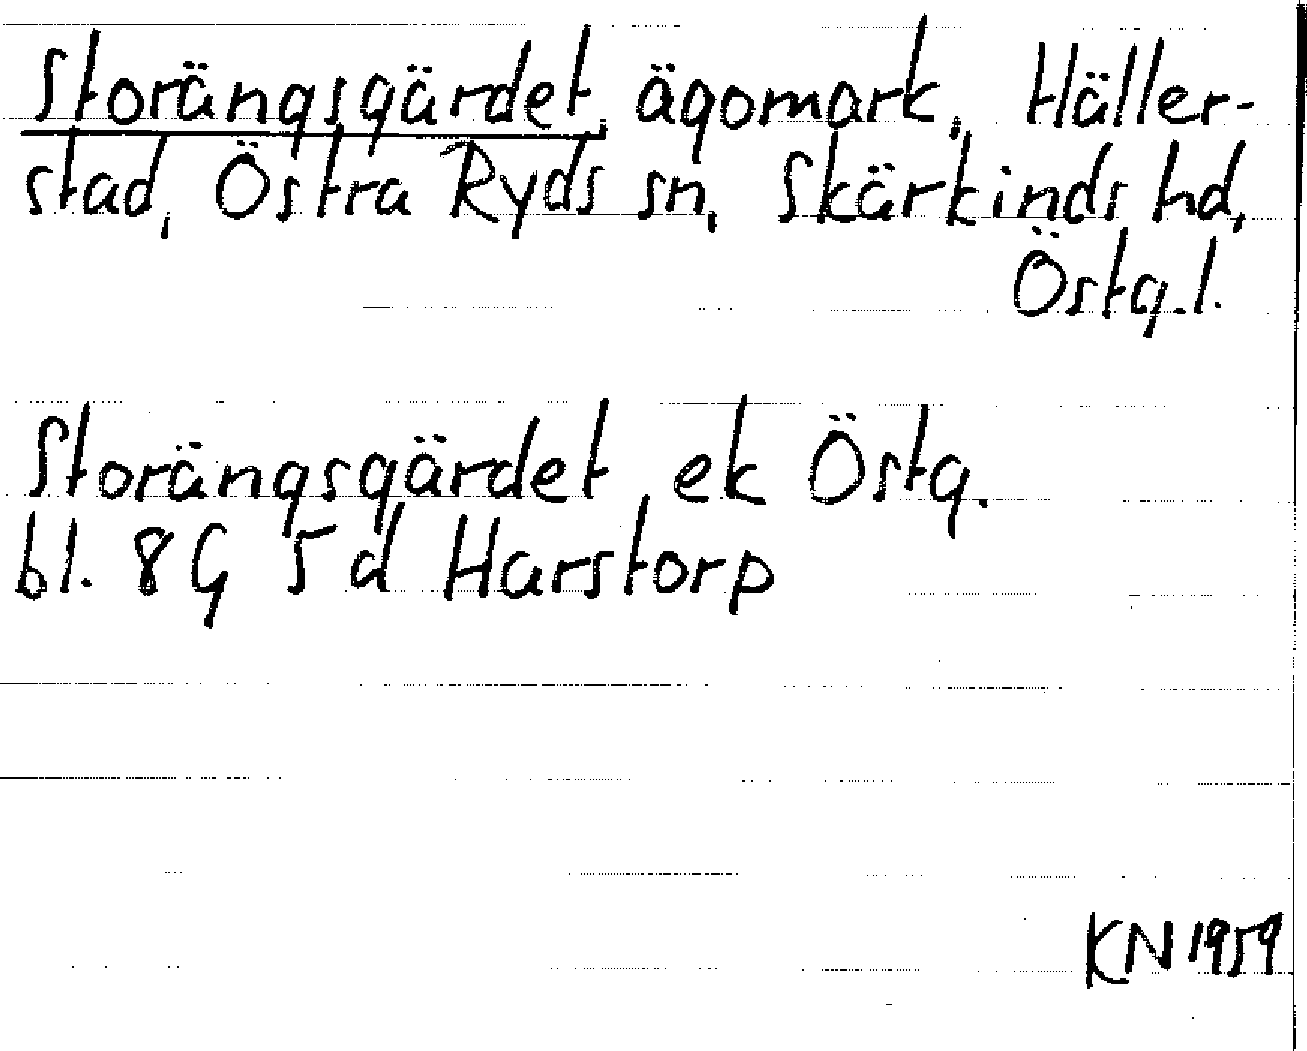 Storängsgärdet, ägomark, Häller-
stad, Östra Ryds sn, Skärkinds hd,
Östg.l.
Storängsgärdet ek Östg.
bl. 8G 5d Harstorp
KN 1959